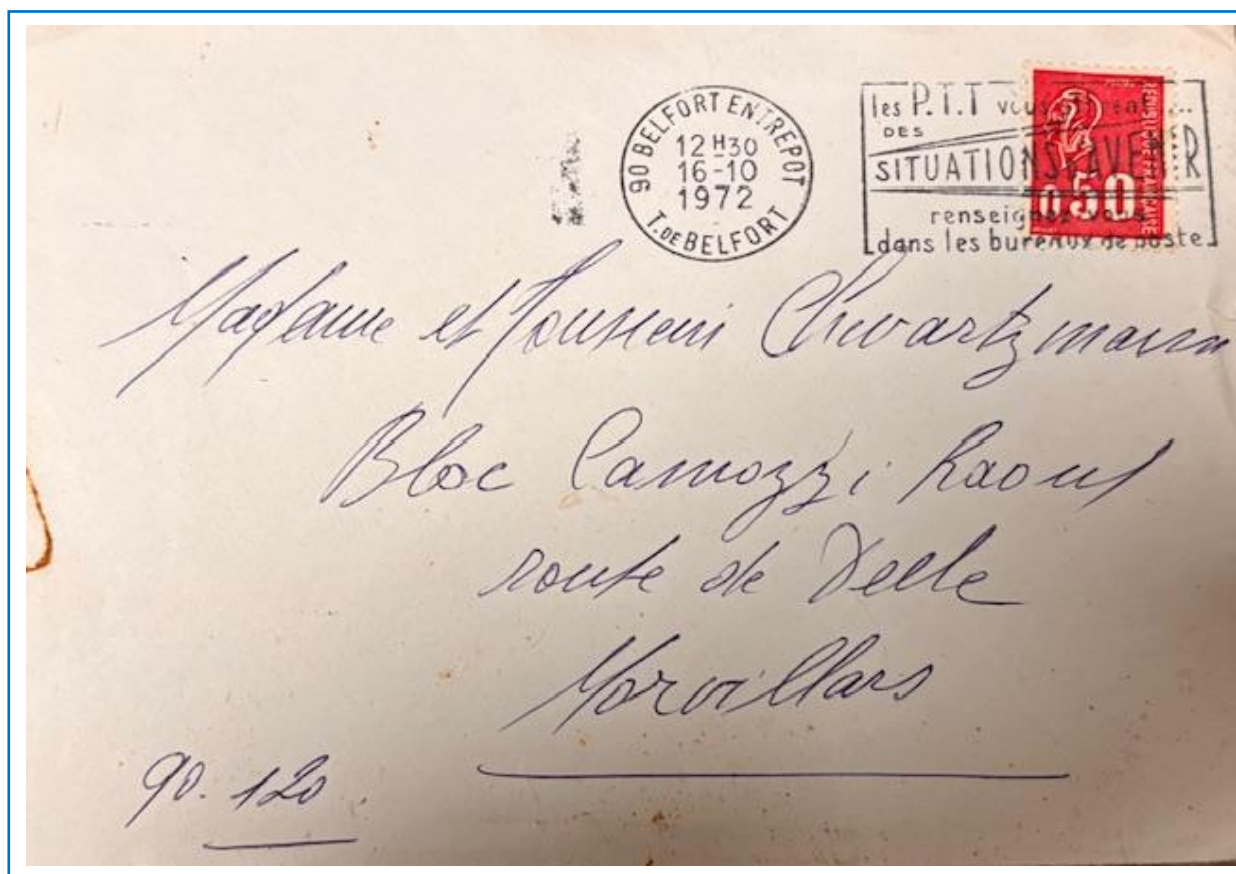 90 BELFORT ENTREPOT
12 H30
16-10
1972
T. DE BELFORT
les P.T.T vous offrent...
DES
SITUATIONS D'AVENIR
renseignez vous
dans les bureaux de poste
REPUBLIQUE FRANCAISE
0.50
Madame et Monsieur Chwartzmann
Bloc Camozzi Raoul
route de Delle
Morvillars
90.120.